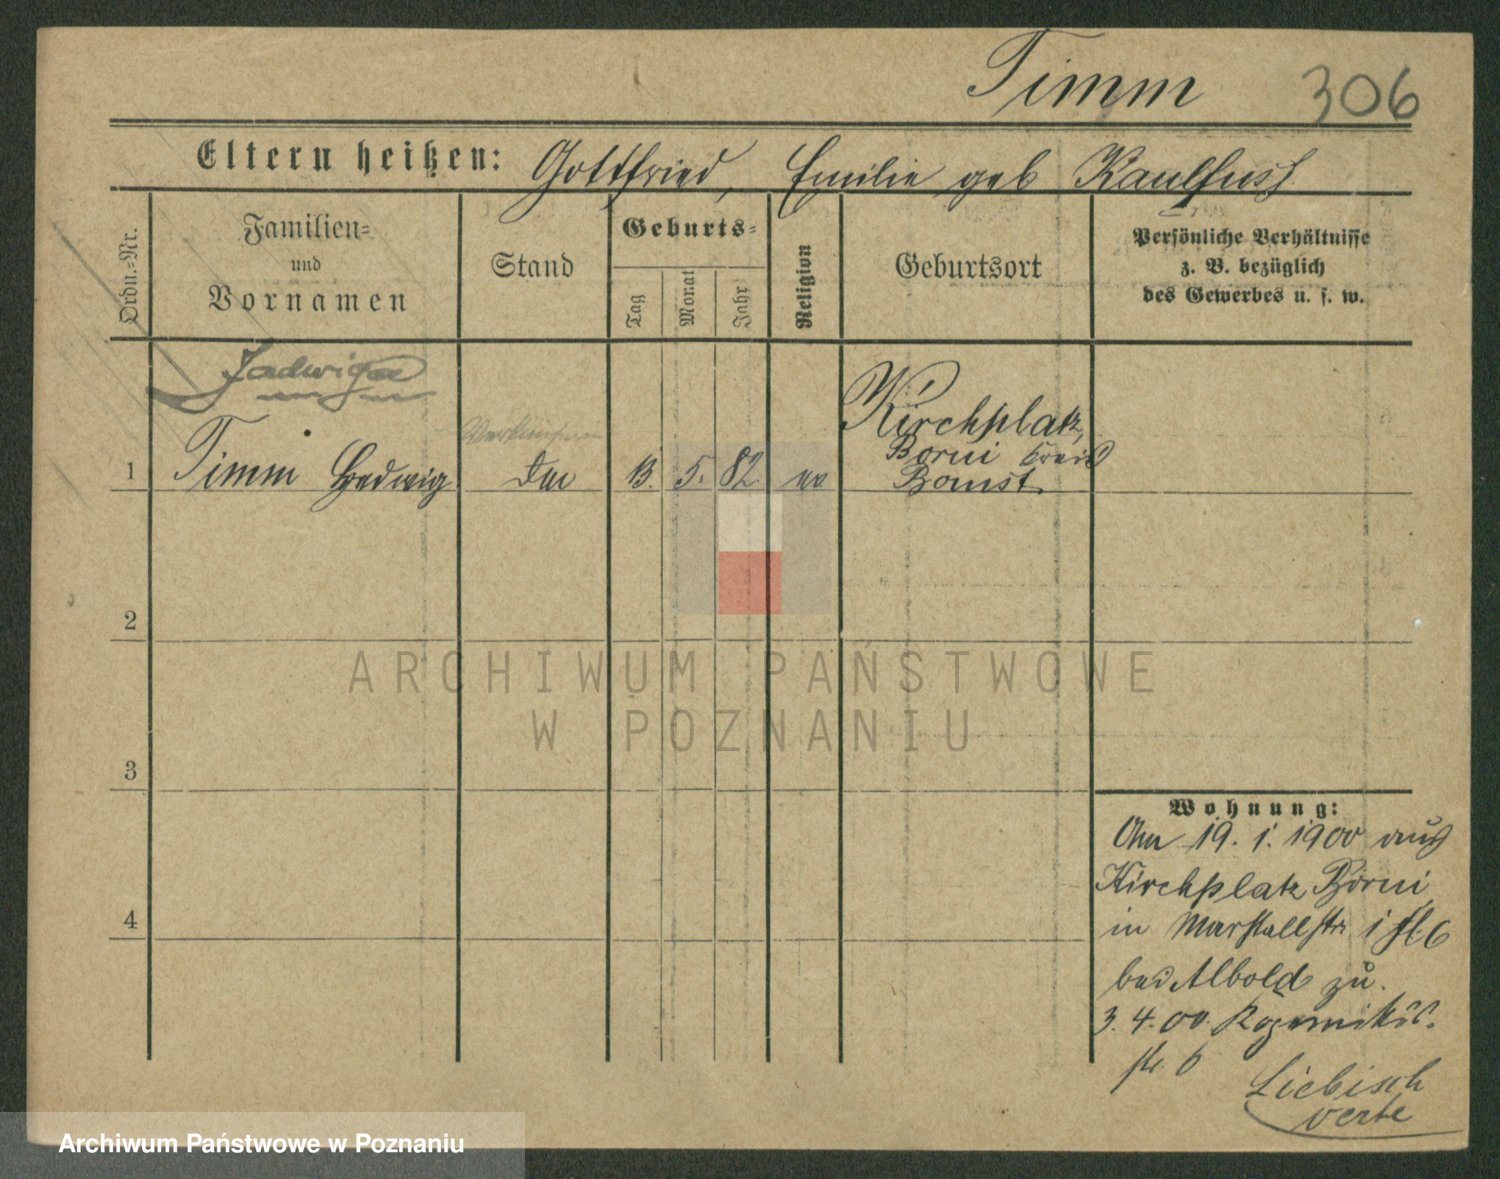 Timm 306
Eltern heißen: Gottfried, Emilie geb Kaulfuss
Ordn.-Nr.
Familien=
und
Vornamen
Stand
Geburts=
Tag
Monat
Jahr
Religion
Geburtsort
Persönliche Verhältnisse
z. B. bezüglich
des Gewerbes u. s. w.
Jadwiga
1 Timm Hedwig 13. 5. 82 ev Kirchplatz,
Borui Kreis
Bomst
2
3
4
Wohnung:
Am 19. 1. 1900 aus
Kirchplatz Borui
in Marstallstr
bei Albold zu.
3. 4. 00.
str. 6
Liebisch
verte
ARCHIWUM PAŃSTWOWE
W POZNANIU
Archiwum Państwowe w Poznaniu